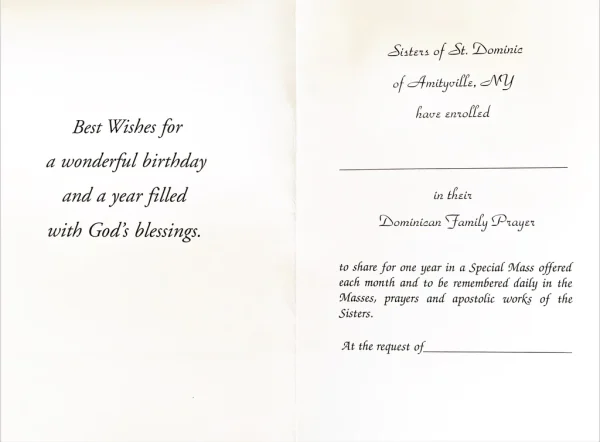 Best Wishes for
a wonderful birthday
and a year filled
with God's blessings.
Sisters of St. Dominic
of Amityville, NY
have enrolled
in their
Dominican Family Prayer
to share for one year in a Special Mass offered
each month and to be remembered daily in the
Masses, prayers and apostolic works of the
Sisters.
At the request of